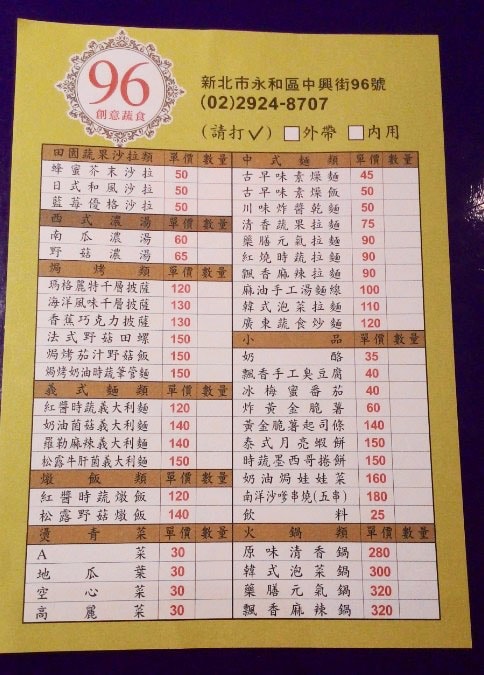 96
創意蔬食
新北市永和區中興街96號
(02)2924-8707
(請打✓) □外帶 □內用
田園蔬果沙拉類 單價 數量
蜂蜜芥末沙拉 50
日式和風沙拉 50
藍莓優格沙拉 50
西式濃湯 單價 數量
南瓜濃湯 60
野菇濃湯 65
焗烤類 單價 數量
瑪格麗特千層披薩 120
海洋風味千層披薩 130
香蕉巧克力披薩 130
法式野菇田螺 150
焗烤茄汁野菇飯 150
焗烤奶油時蔬筆管麵 150
義式麵類 單價 數量
紅醬時蔬義大利麵 120
奶油菌菇義大利麵 140
羅勒麻辣義大利麵 140
松露牛肝菌義大利麵 150
燉飯類 單價 數量
紅醬時蔬燉飯 120
松露野菇燉飯 140
燙青菜 單價 數量
A菜 30
地瓜葉 30
空心菜 30
高麗菜 30
中式麵類 單價 數量
古早味素燥麵 45
古早味素燥飯 50
川味炸醬乾麵 50
清香蔬果拉麵 75
藥膳元氣拉麵 90
紅燒時蔬拉麵 90
飄香麻辣拉麵 90
麻油手工湯麵線 100
韓式泡菜拉麵 110
廣東蔬食炒麵 120
小品 單價 數量
奶酪 35
飄香手工臭豆腐 40
冰梅蜜番茄 40
炸黃金脆薯 60
黃金脆薯起司條 140
泰式月亮蝦餅 150
時蔬墨西哥捲餅 150
奶油焗娃娃菜 160
南洋沙嗲串燒(五串) 180
飲料 25
火鍋類 單價 數量
原味清香鍋 280
韓式泡菜鍋 300
藥膳元氣鍋 320
飄香麻辣鍋 320